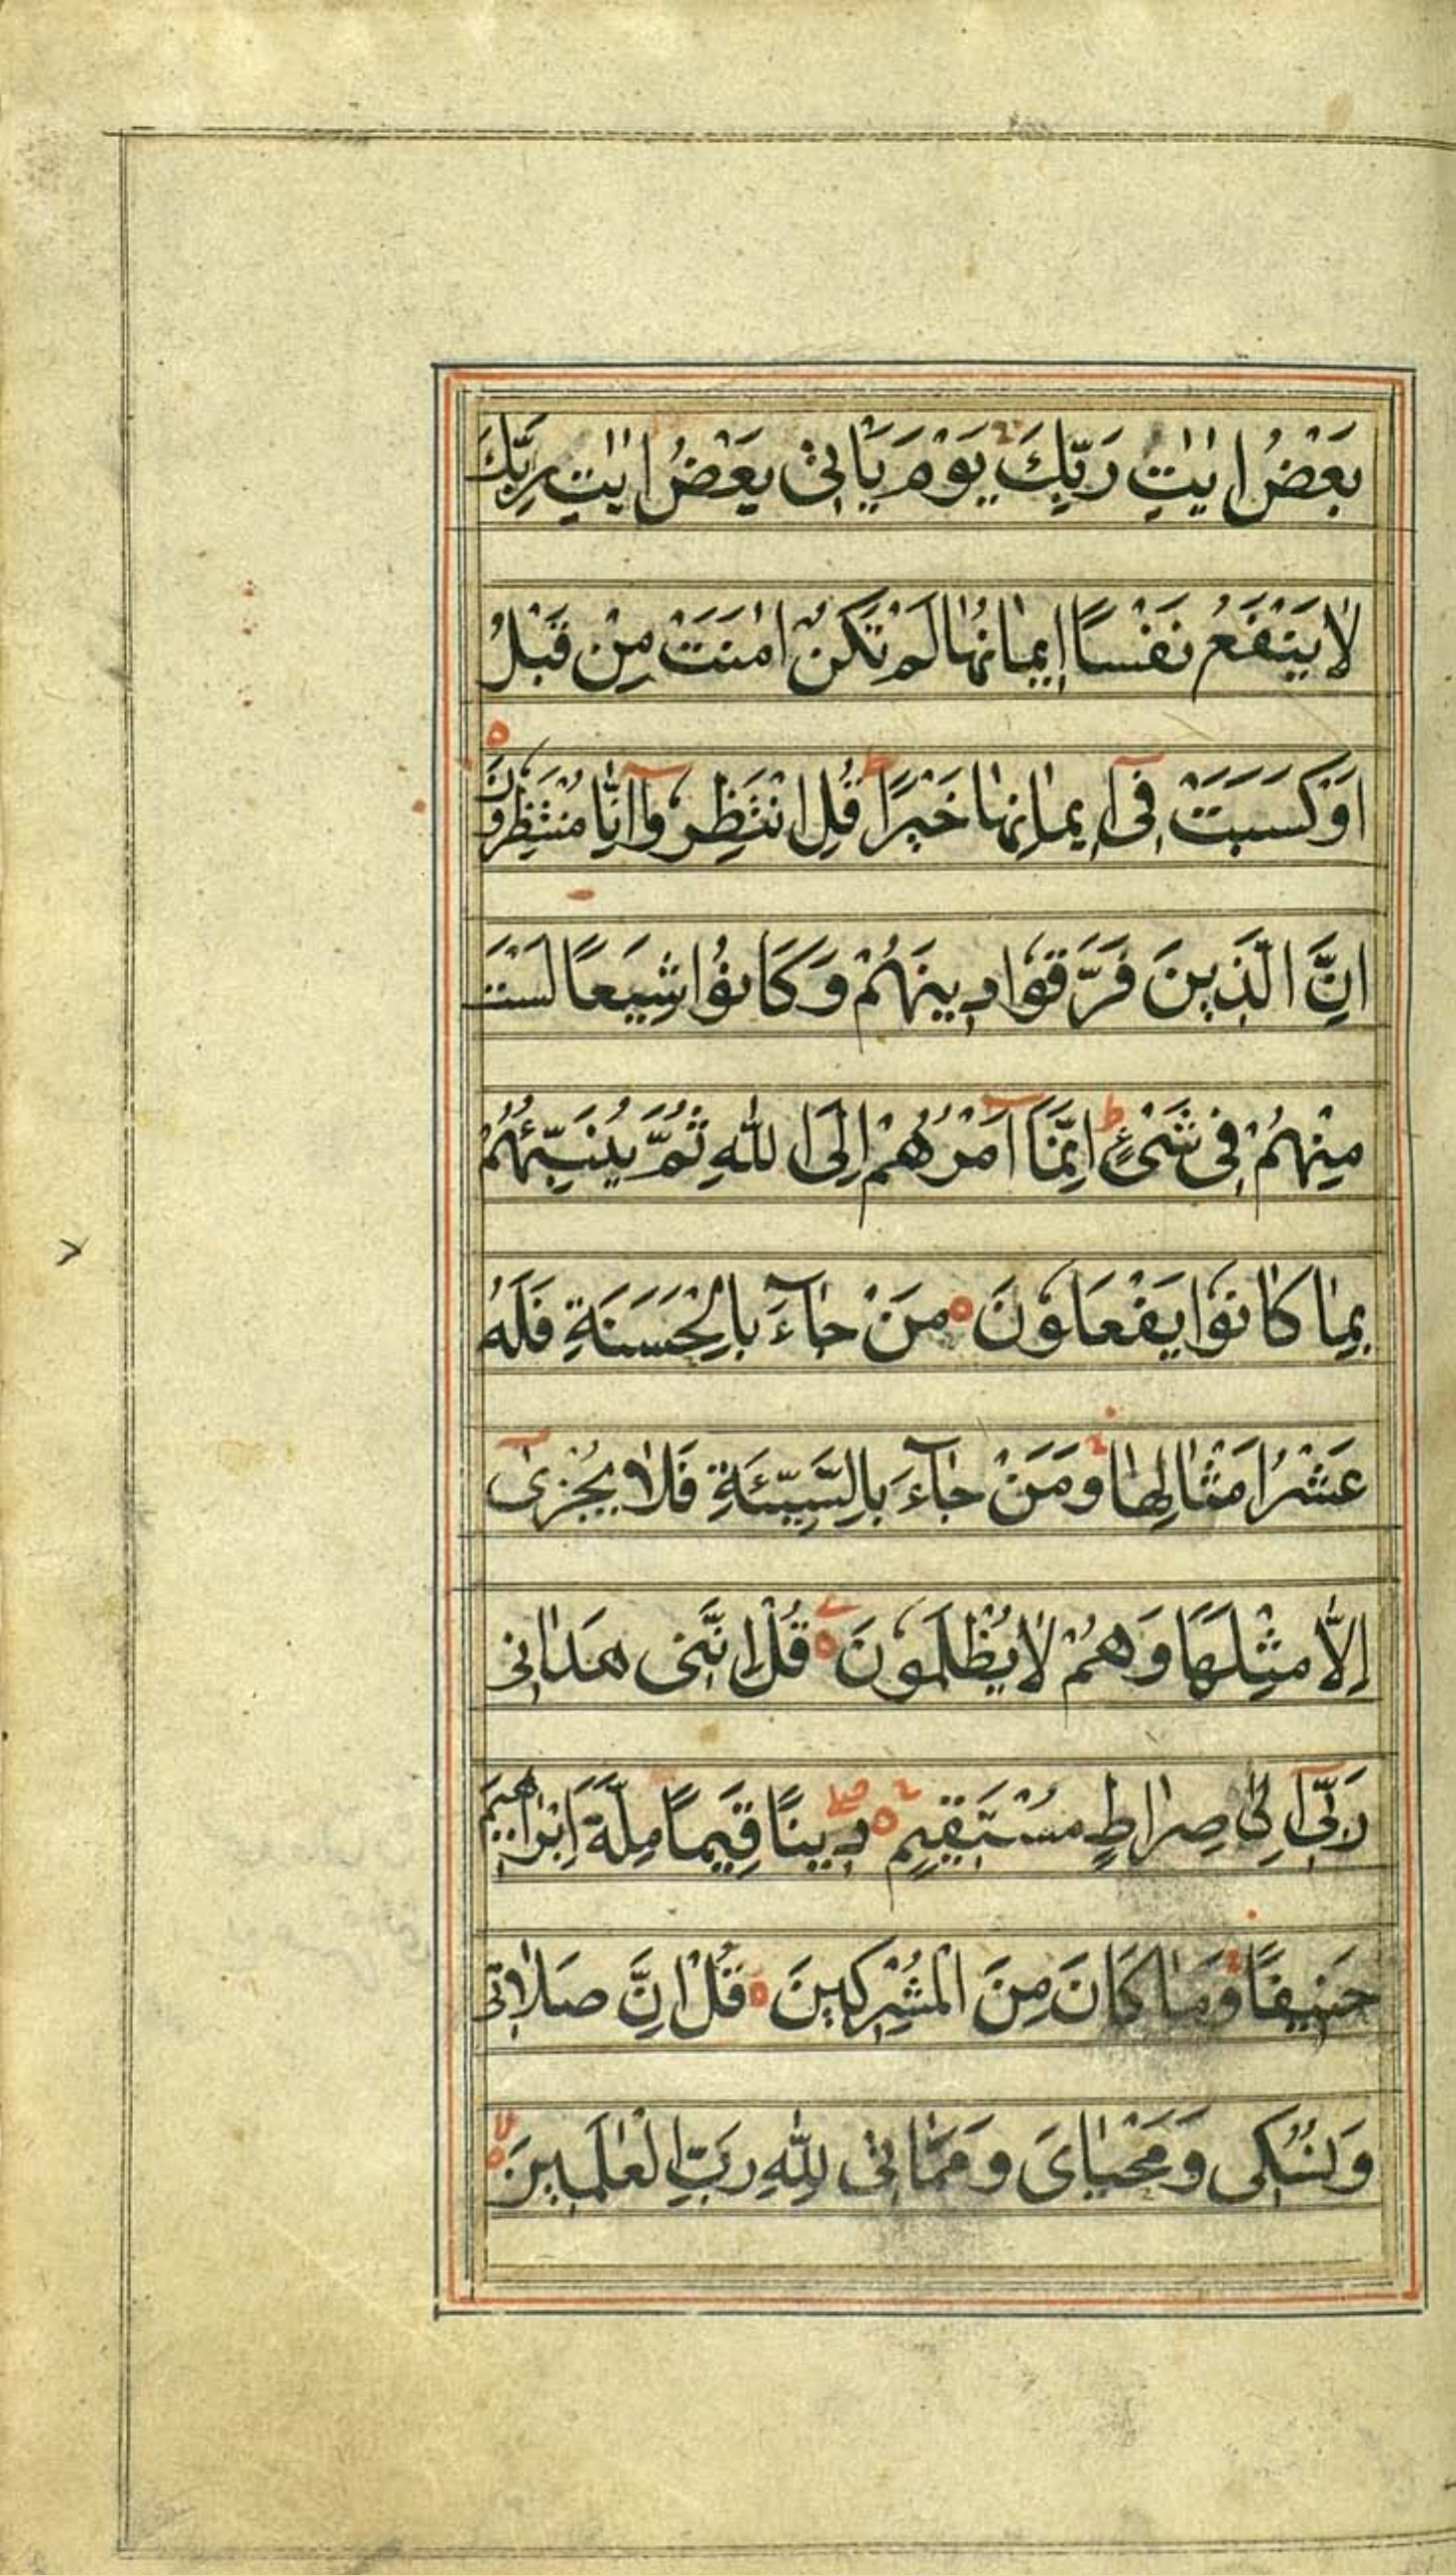 بَعْضُ اٰیٰتِ رَبِّكَ ط یَوْمَ یَاْتِیْ بَعْضُ اٰیٰتِ رَبِّكَ
لَا یَنْفَعُ نَفْسًا اِیمَانُهَا لَمْ تَكُنْ اٰمَنَتْ مِنْ قَبْلُ
اَوْ كَسَبَتْ فِیٓ اِیمَانِهَا خَیْرًا ط قُلِ انْتَظِرُوٓا اِنَّا مُنْتَظِرُوْنَ ه
اِنَّ الَّذِینَ فَرَّقُوْا دِینَهُمْ وَكَانُوْا شِیَعًا لَسْتَ
مِنْهُمْ فِی شَیْءٍ ط اِنَّمَآ اَمْرُهُمْ اِلَی اللّٰهِ ثُمَّ یُنَبِّئُهُمْ
بِمَا كَانُوْا یَفْعَلُوْنَ ه مَنْ جَآءَ بِالْحَسَنَةِ فَلَهُ
عَشْرُ اَمْثَالِهَا وَمَنْ جَآءَ بِالسَّیِّئَةِ فَلَا یُجْزٰیٓ
اِلَّا مِثْلَهَا وَهُمْ لَا یُظْلَمُوْنَ ه قُلْ اِنَّنِی هَدَانِی
رَبِّیٓ اِلٰی صِرَاطٍ مُسْتَقِیمٍ ه دِینًا قِیَمًا مِلَّةَ اِبْرَاهِیمَ
حَنِیفًا وَمَا كَانَ مِنَ الْمُشْرِكِینَ ه قُلْ اِنَّ صَلَاتِی
وَنُسُكِی وَمَحْیَایَ وَمَمَاتِی لِلّٰهِ رَبِّ الْعٰلَمِینَ ه لا